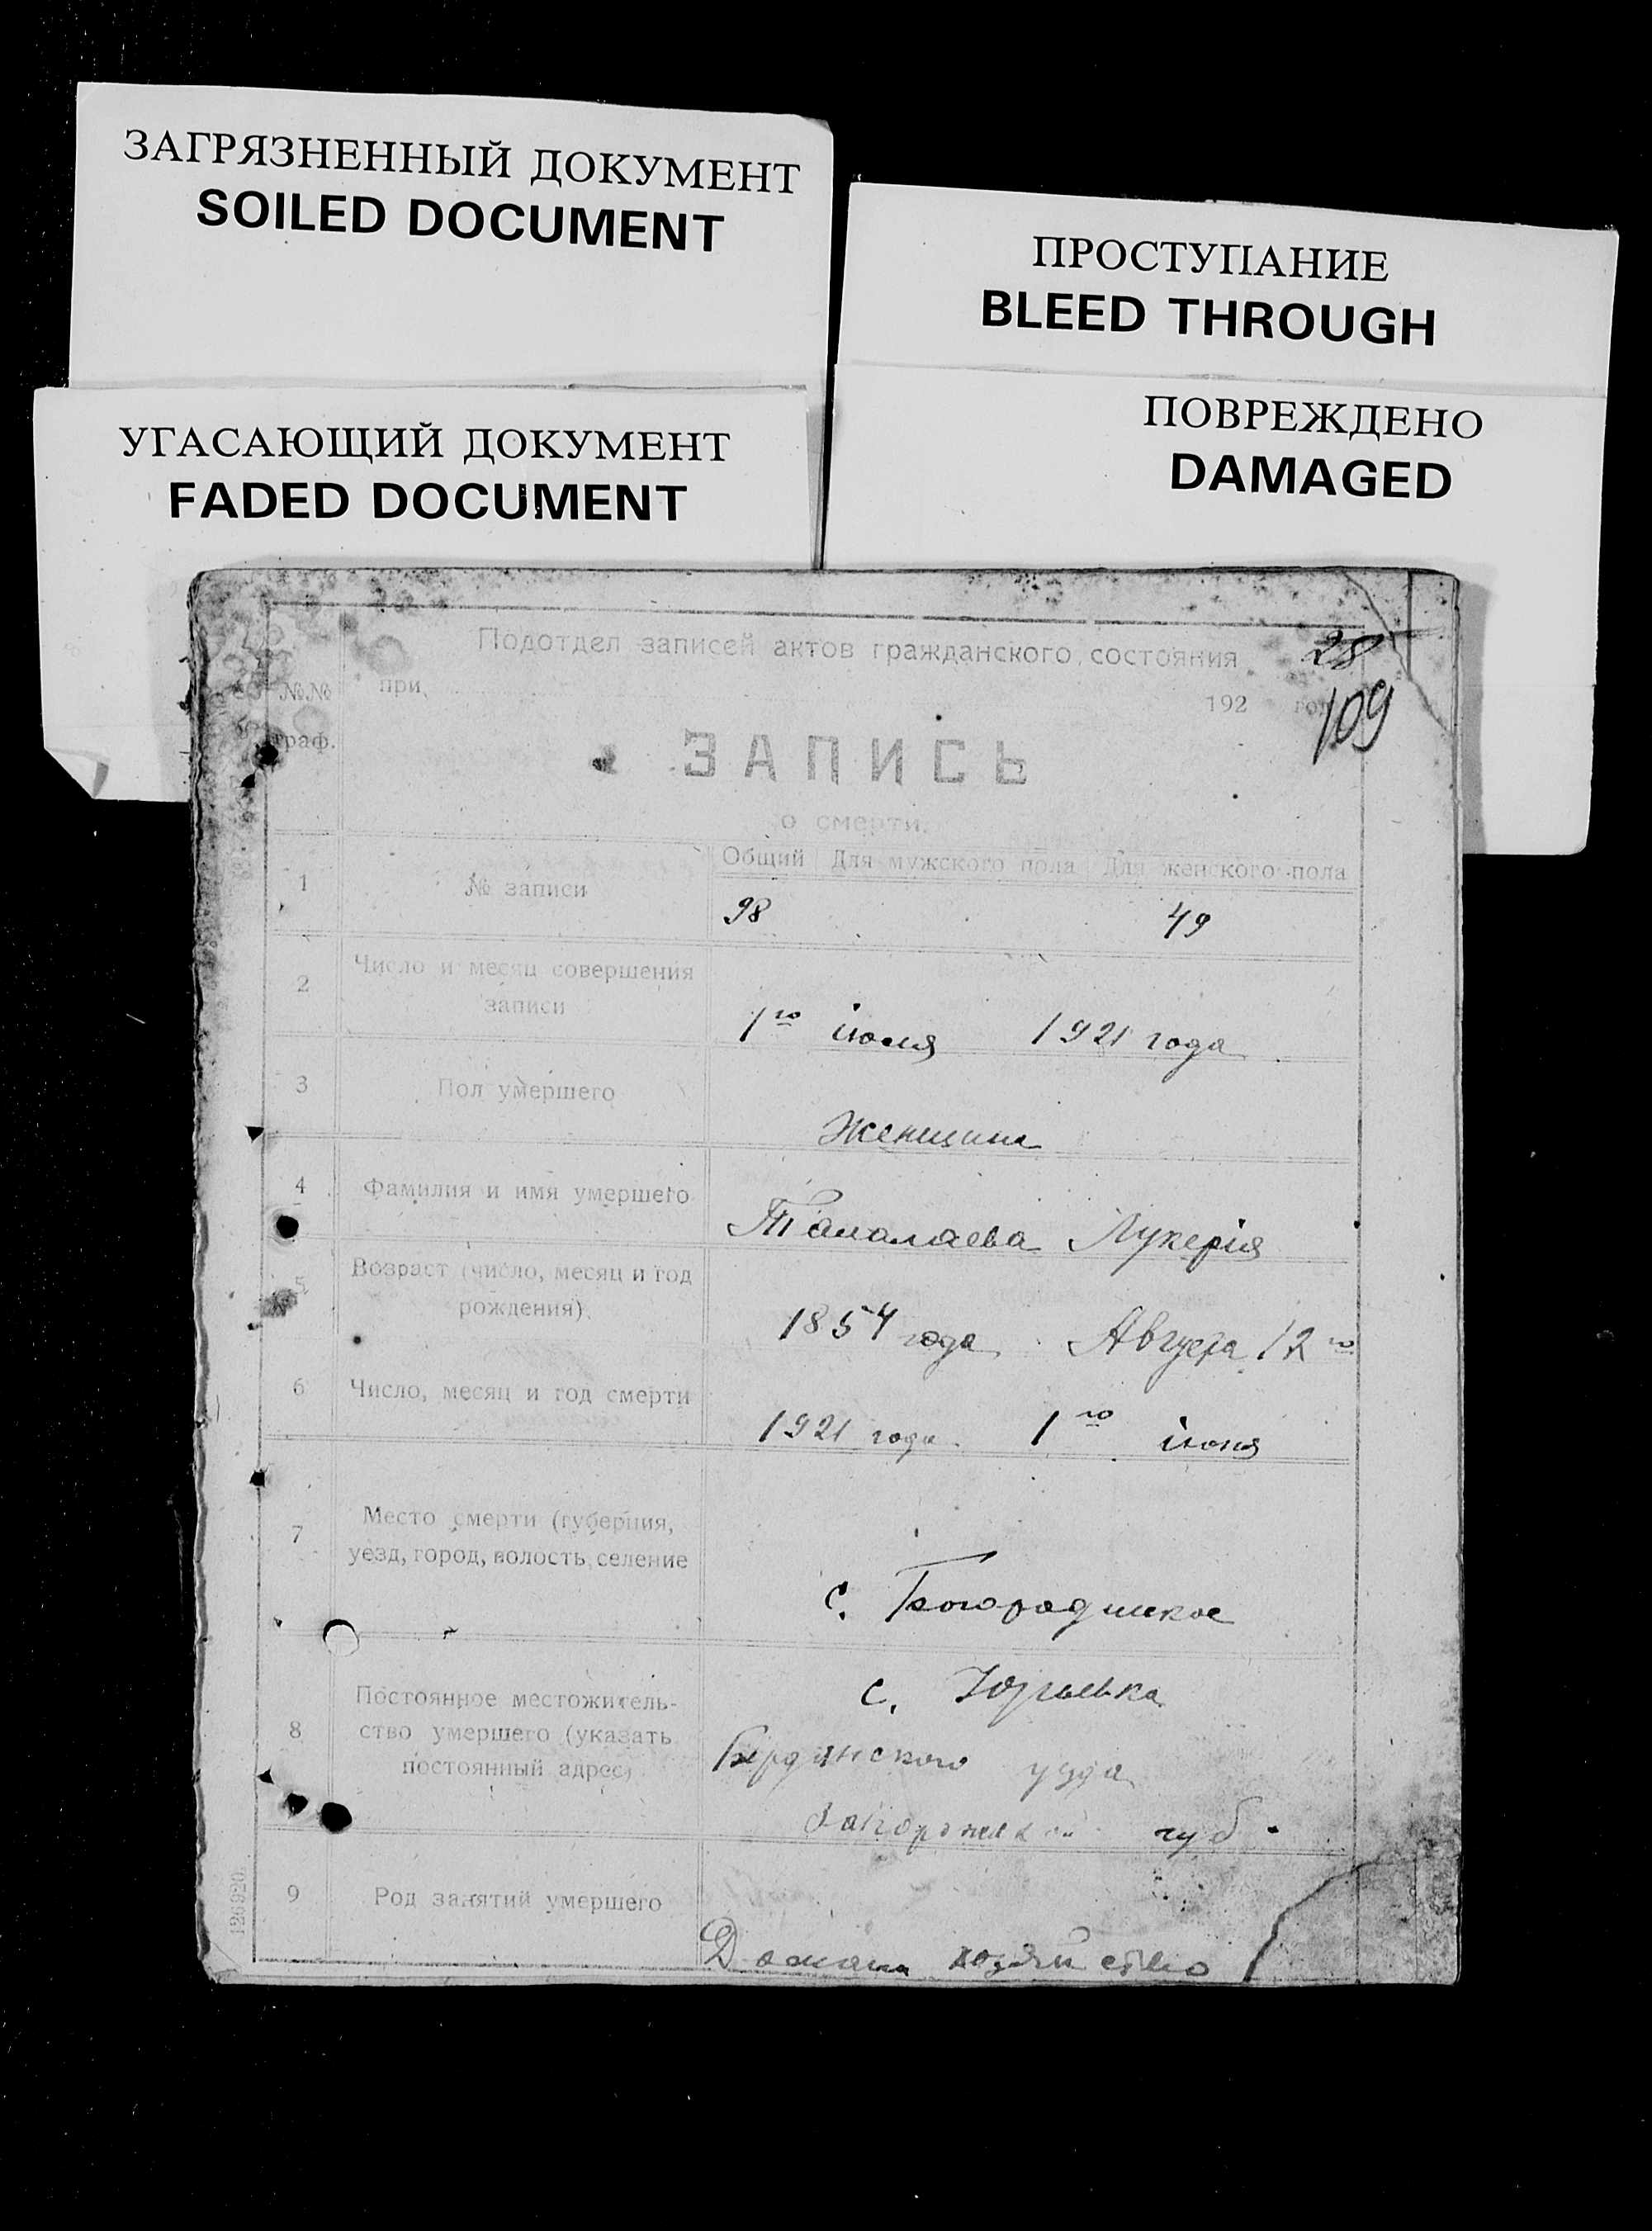 ЗАГРЯЗНЕННЫЙ ДОКУМЕНТ
SOILED DOCUMENT
ПРОСТУПАНИЕ
BLEED THROUGH
УГАСАЮЩИЙ ДОКУМЕНТ
FADED DOCUMENT
ПОВРЕЖДЕНО
DAMAGED
Подотдел записей актов гражданского состояния
28
№№
граф.
при
192 год
109
ЗАПИСЬ
о смерти.
1
№ записи
Общий Для мужского пола Для женского пола
98 49
2
Число и месяц совершения
записи
1го июля 1921 года
3
Пол умершего
Женщина
4
Фамилия и имя умершего
Лукерія
5
Возраст (число, месяц и год
рождения)
1854 года Августа 12го
6
Число, месяц и год смерти
1921 года 1го іюня
7
Место смерти (губерния,
уезд, город, волость, селение
с. Богородицкое
8
Постоянное местожитель-
ство умершего (указать
постоянный адрес)
с. Юрьевка
Бердянского уезда
губ.
9
Род занятий умершего
хозяйство
126920